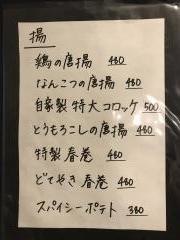 揚
鶏の唐揚 480
なんこつの唐揚 480
自家製 特大コロッケ 500
とうもろこしの唐揚 480
特製春巻 480
どてやき春巻 480
スパイシーポテト 380